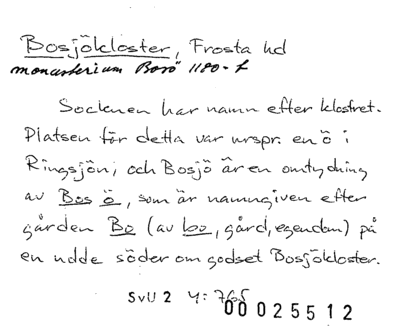 Bosjökloster, Frosta hd
monasterium Bosö 1180-t
Socknen har namn efter klostret.
Platsen för detta var urspr. en ö i
Ringsjön, och Bosjö är en omtydning
av Bos ö, som är namngiven efter
gården Bo (av bo, gård, egendom) på
en udde söder om godset Bosjökloster.
SvU 2 4:765
00025512